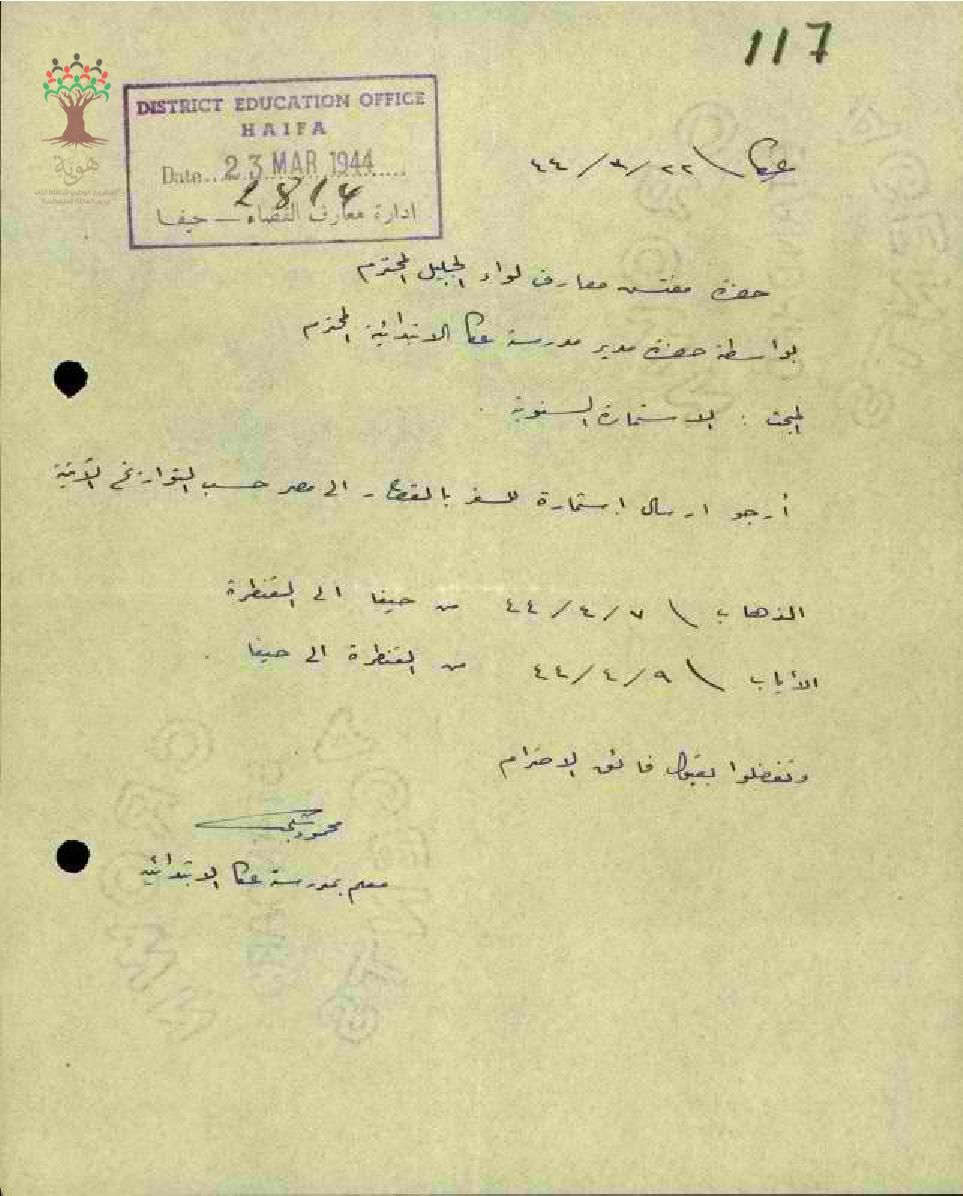 117
DISTRICT EDUCATION OFFICE
HAIFA
Date... 23 MAR 1944
2814
ادارة معارف القضاء — حيفا
هوية
عكا \ ٢٢ / ٣ / ٤٤
حضرة مفتش معارف لواء الجليل المحترم
بواسطة حضرة مدير مدرسة عكا الابتدائية المحترم
المبحث : الاستمارة السنوية .
أرجو ارسال استمارة للسفر بالقطار الى مصر حسب التواريخ الآتية
الذهاب \ ٧ / ٤ / ٤٤ من حيفا الى القنطرة
الأياب \ ٩ / ٤ / ٤٤ من القنطرة الى حيفا .
وتفضلوا بقبول فائق الاحترام
محمود
معلم بمدرسة عكا الابتدائية